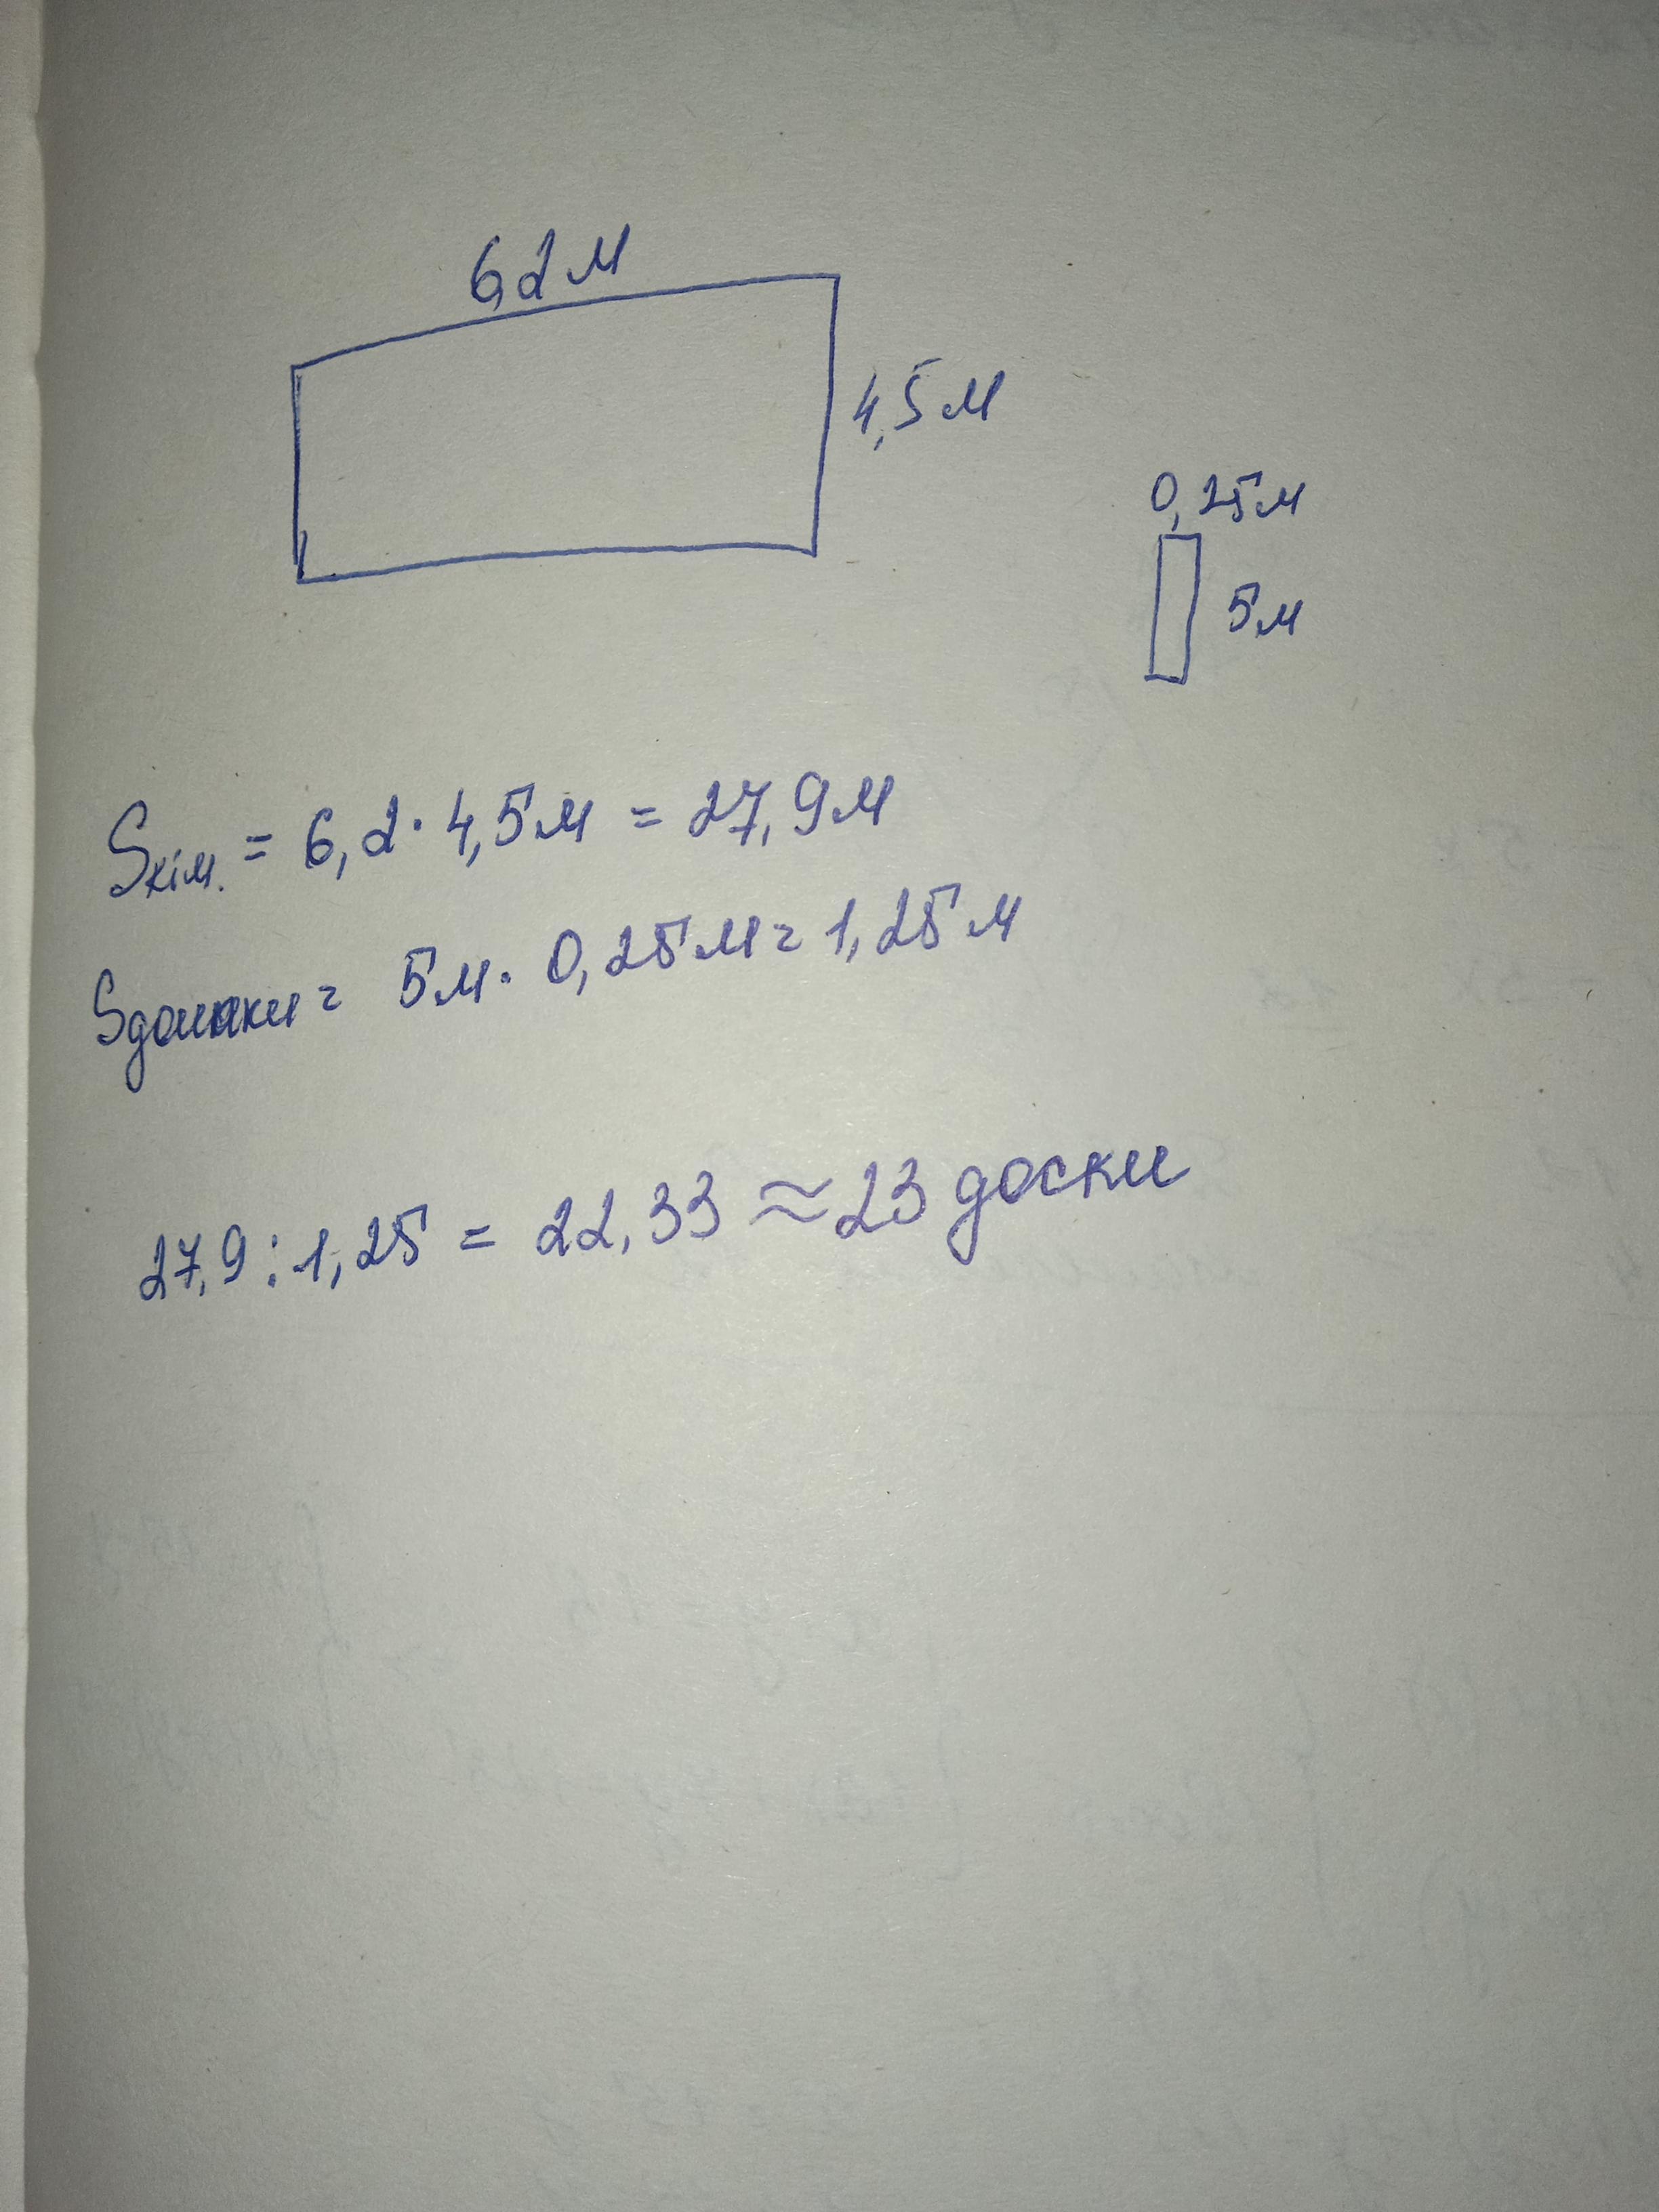 6,2 м
4,5 м
0,25 м
5 м
Sкім. = 6,2 · 4,5 м = 27,9 м
Sдошки = 5 м · 0,25 м = 1,25 м
27,9 : 1,25 = 22,33 ≈ 23 доски